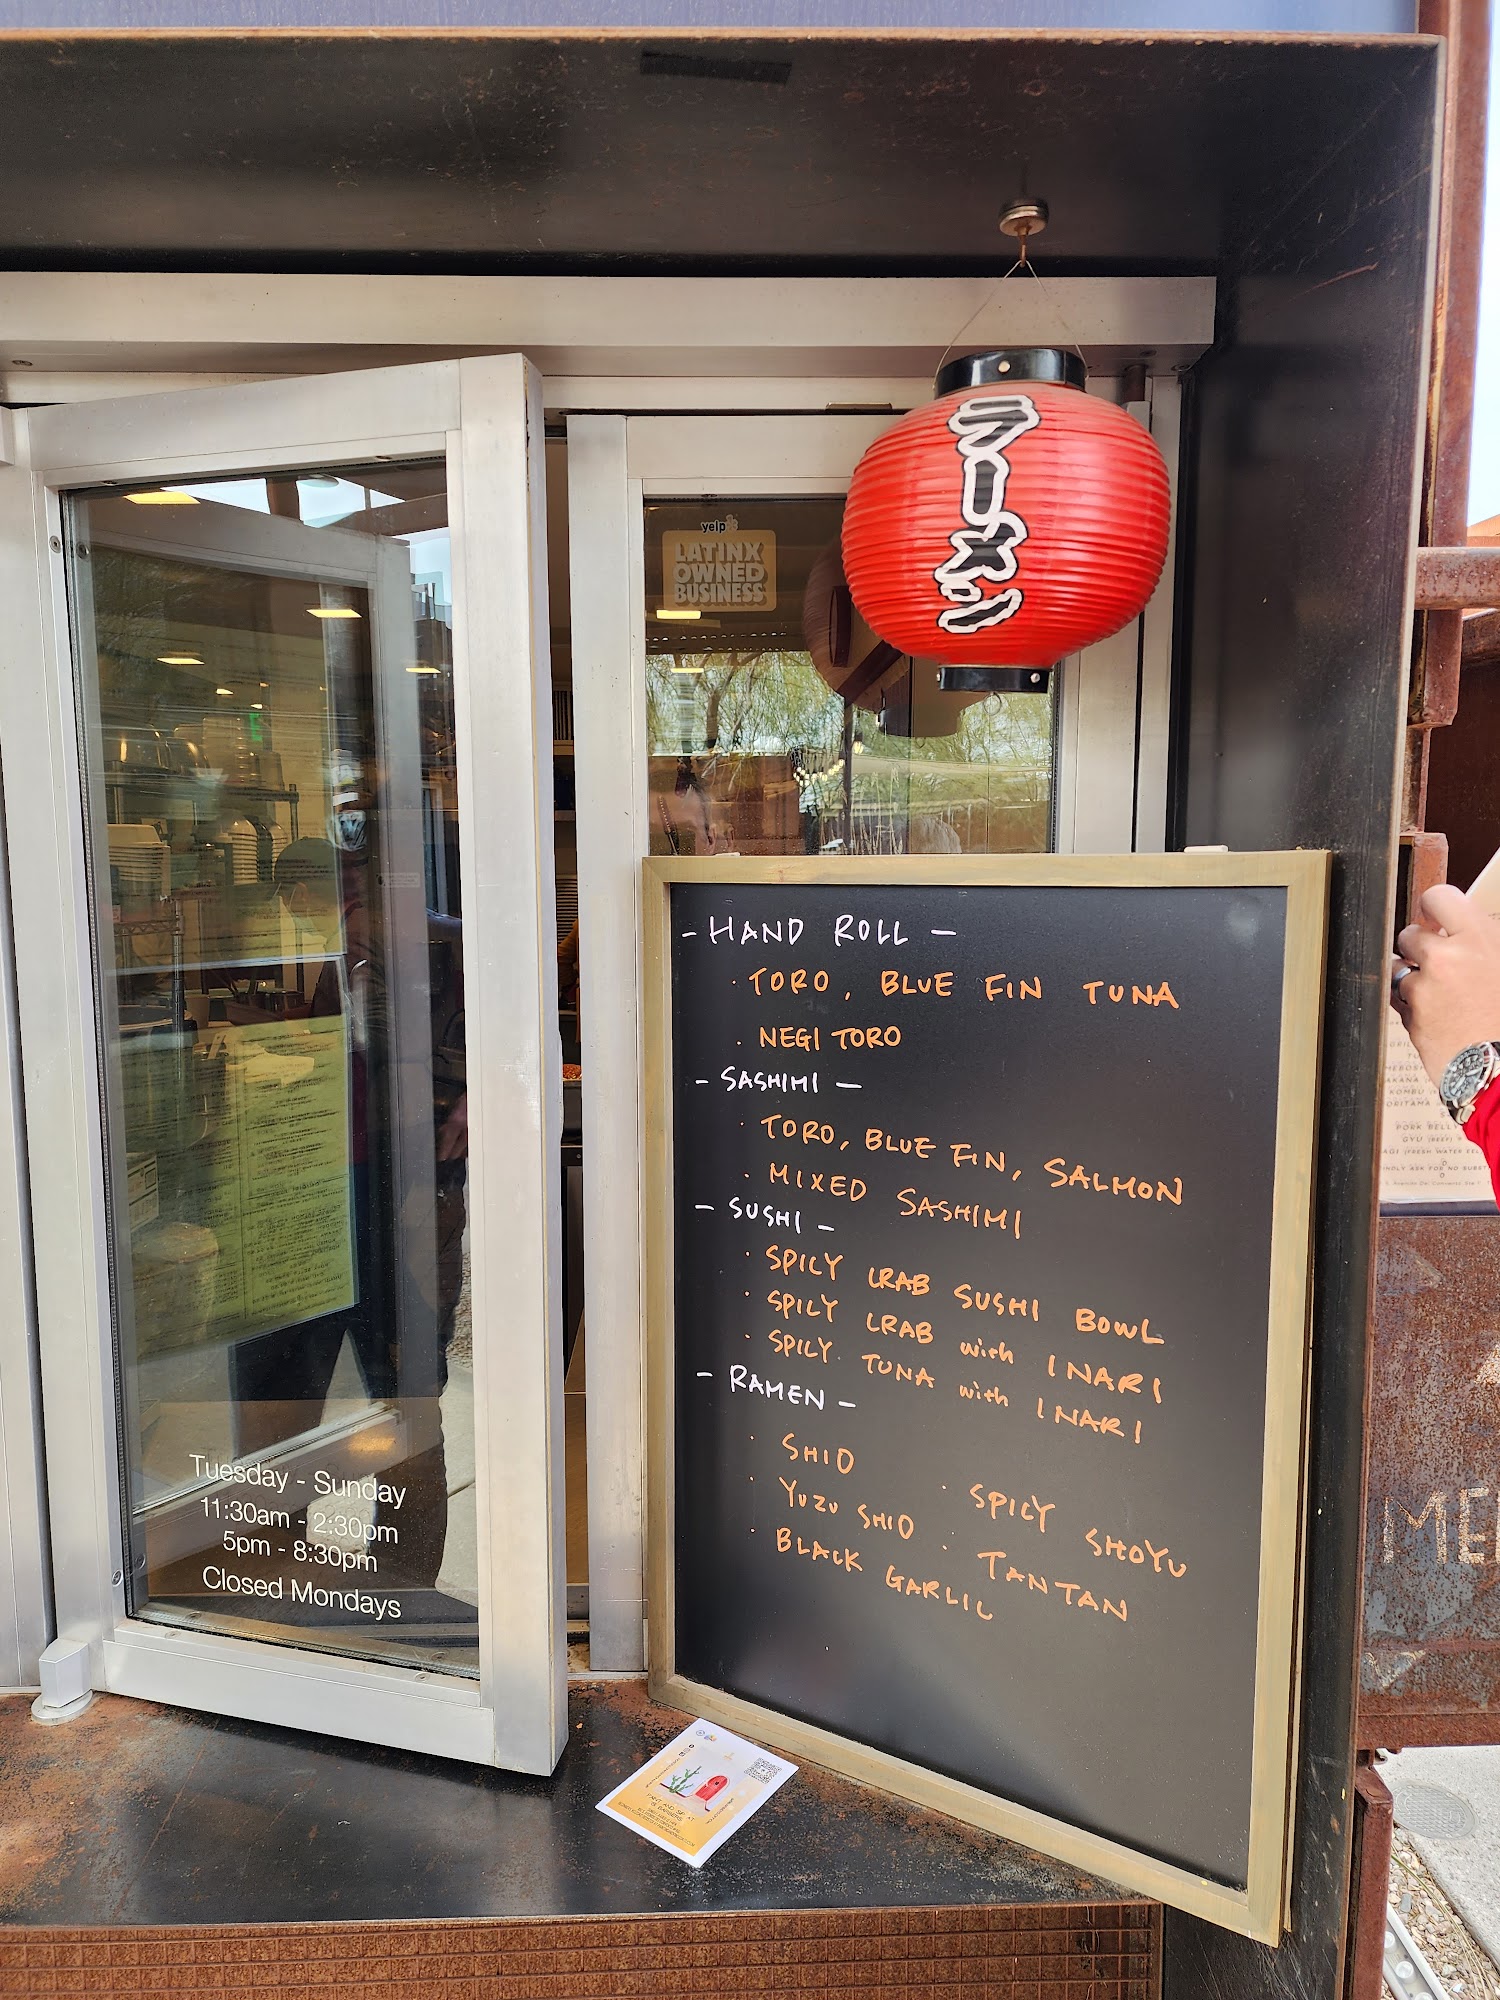 ラーメン
yelp
LATINX
OWNED
BUSINESS
- HAND ROLL -
· TORO, BLUE FIN TUNA
· NEGI TORO
- SASHIMI -
· TORO, BLUE FIN, SALMON
· MIXED SASHIMI
- SUSHI -
· SPICY CRAB SUSHI BOWL
· SPICY CRAB with INARI
· SPICY TUNA with INARI
- RAMEN -
· SHIO
· SPICY SHOYU
· YUZU SHIO
· TANTAN
· BLACK GARLIC
Tuesday - Sunday
11:30am - 2:30pm
5pm - 8:30pm
Closed Mondays
KOMBU
PORK BELLY
GYU (BEEF)